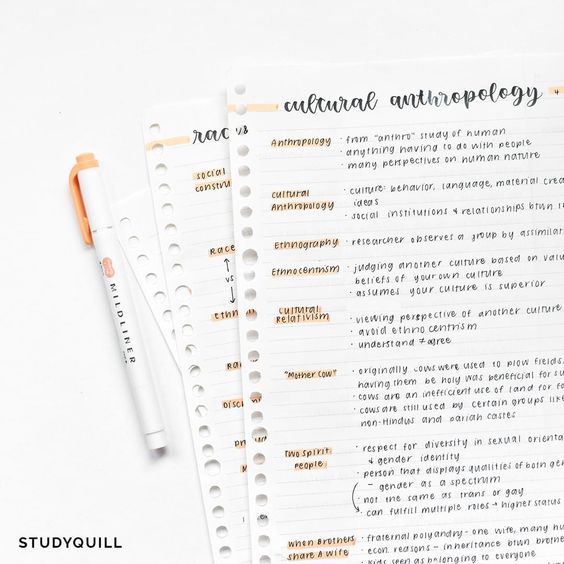 cultural anthropology
Anthropology
· from "anthro" study of human
· anything having to do with people
· many perspectives on human nature
cultural
Anthropology
· culture: behavior, language, material
ideas
· social institutions & relationships btwn
Ethnography
· researcher observes a group by
Ethnocentrism
· judging another culture based on
beliefs of your own culture
· assumes your culture is superior
Cultural
Relativism
· viewing perspective of another culture
· avoid ethnocentrism
· understand ≠ agree
"Mother Cow"
· originally cows were used to plow fields,
having them be holy was beneficial for
· cows are an inefficient use of land for
· cows are still used by certain groups like
non-Hindus and pariah castes
Two Spirit
People
· respect for diversity in sexual
& gender identity
· person that displays qualities of both
- gender as a spectrum
· not the same as trans or gay
· can fulfill multiple roles → higher status
When Brothers
share A Wife
· fraternal polyandry - one wife, many
· econ. reasons - inheritance btwn
· kids seen as belonging to everyone
social
Race
vs
MILDLINER
STUDYQUILL